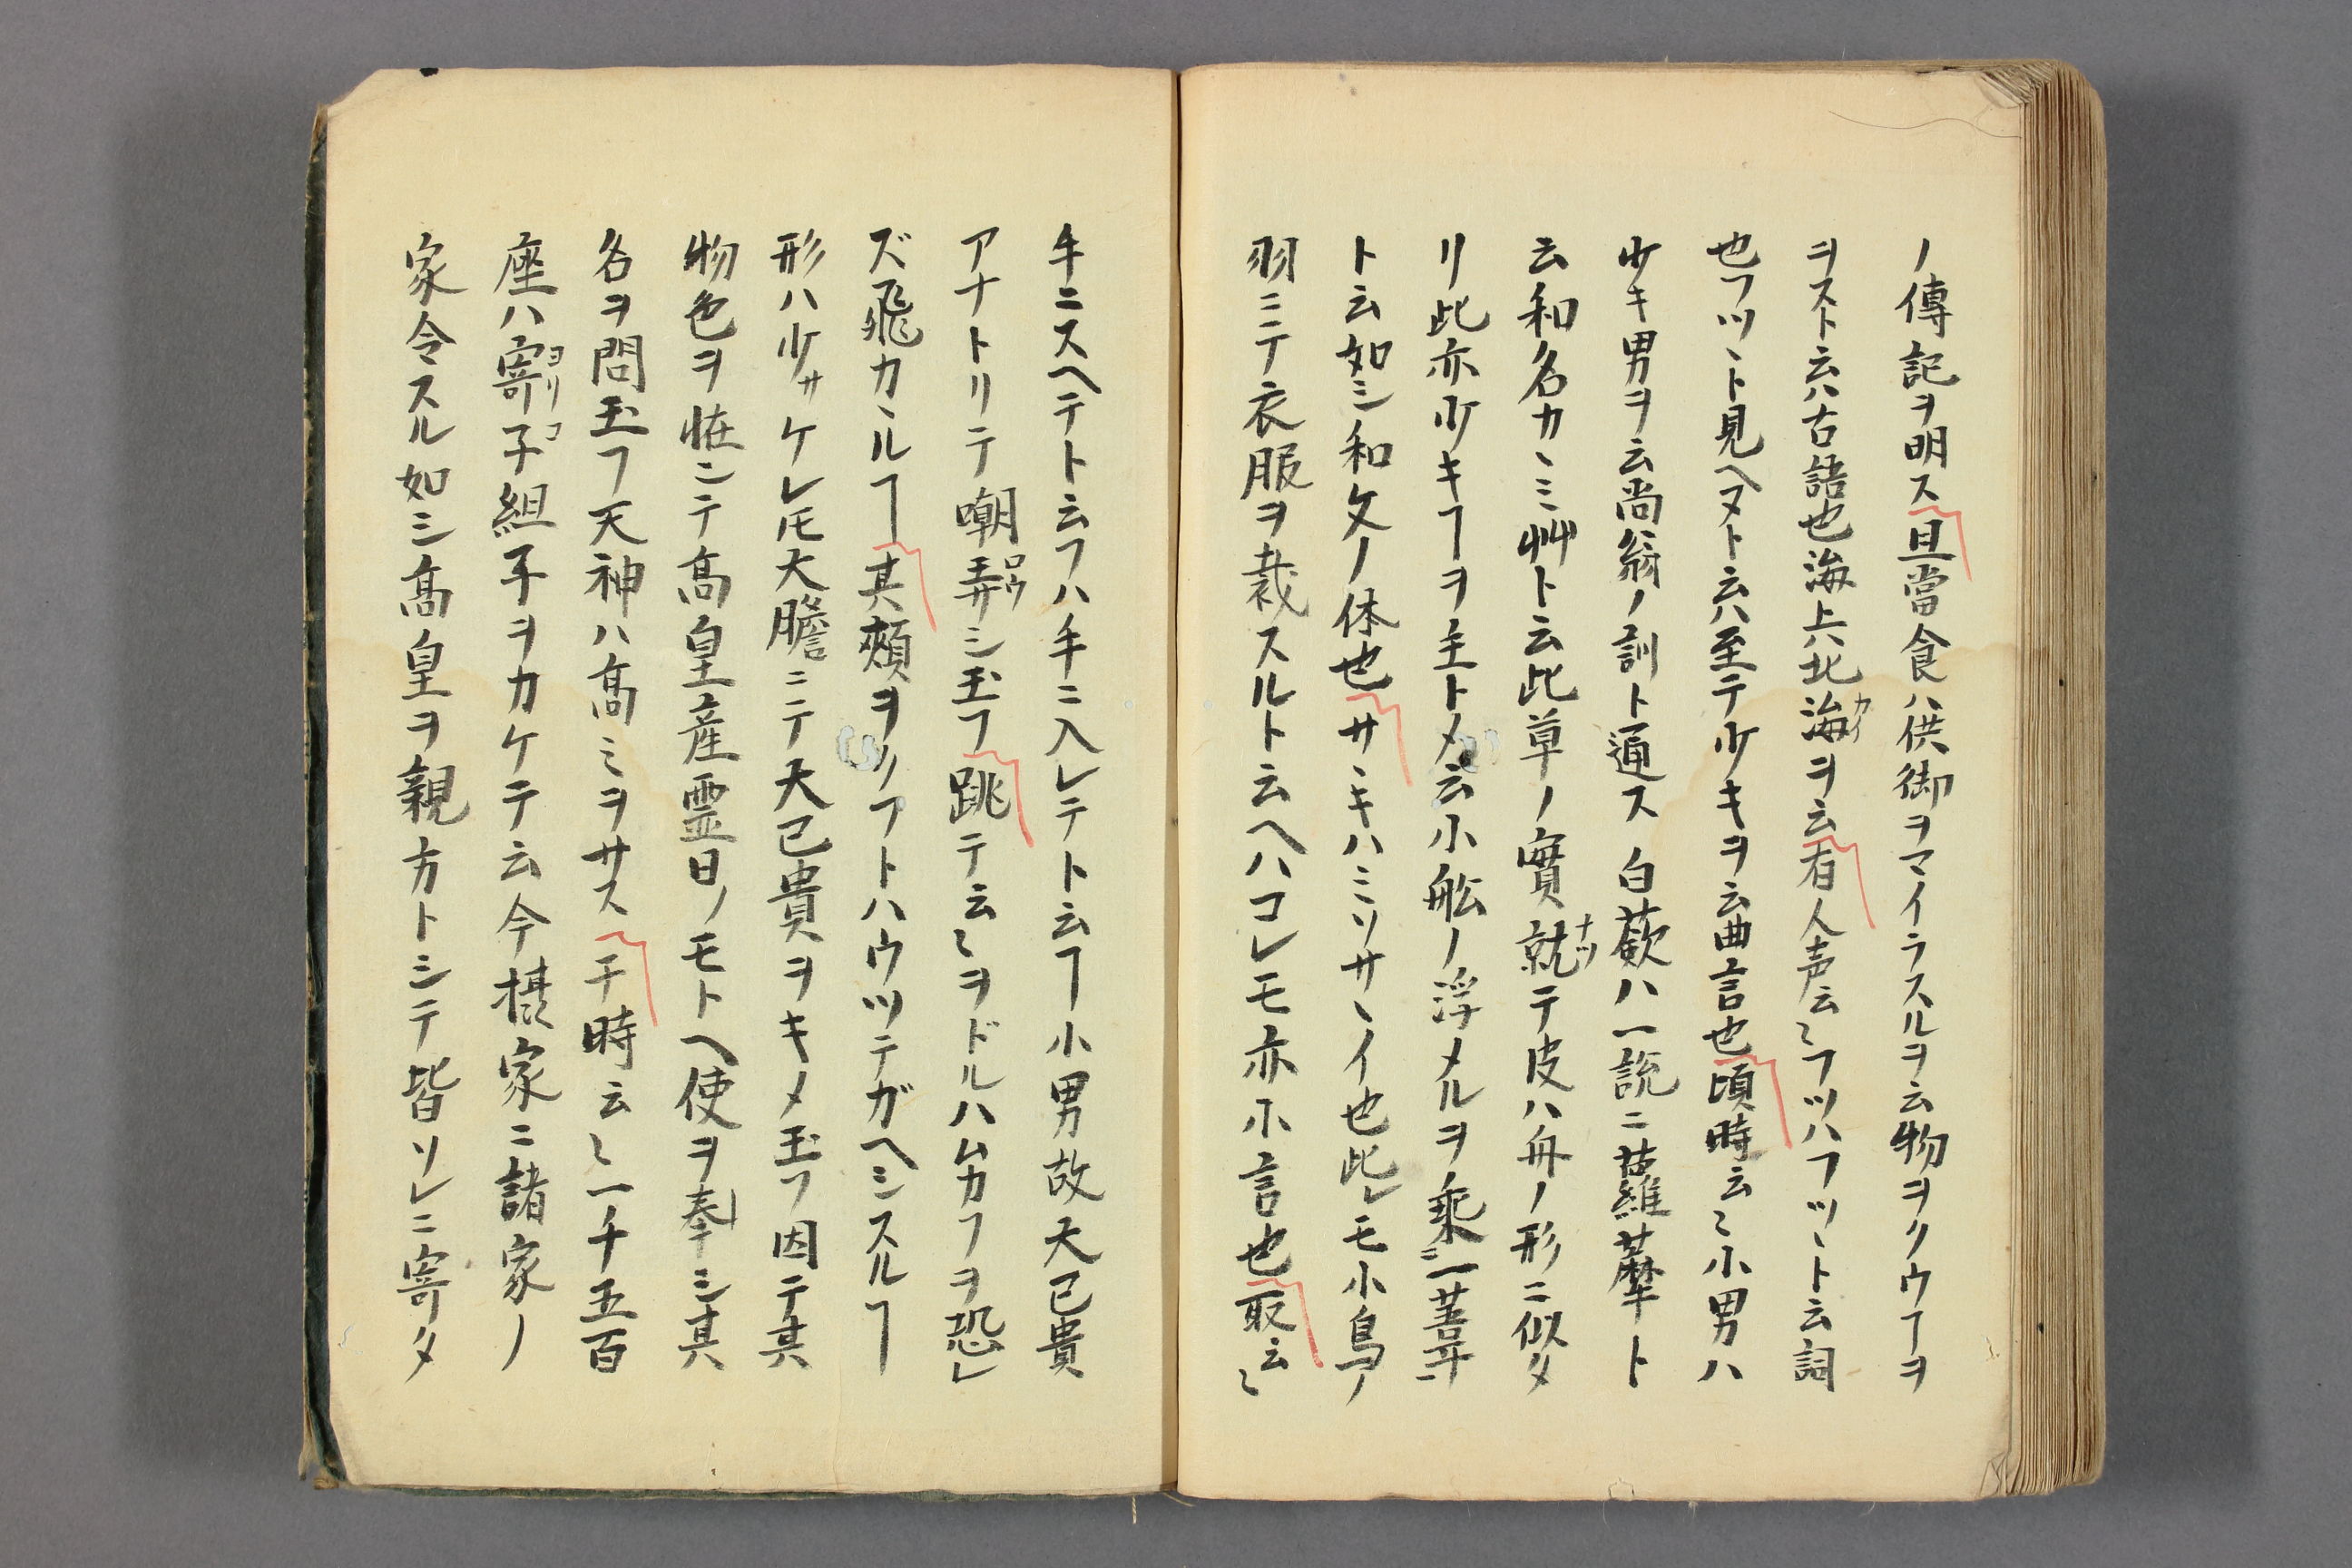 ノ傳記ヲ明ス且當食ハ供御ヲマイラスルヲ云物ヲクウヿヲ
ヲスト云ハ古語也海上ハ北海カイヲ云有人声云〻フツハフツヽト云詞
也フツヽト見ヘヌト云ハ至テ少キヲ云曲言也頃時云〻小男ハ
少キ男ヲ云尚翁ノ訓ト通ス白蘞ハ一説ニ蘿藦ト
云和名カヽミ艸ト云此草ノ實就ナツテ皮ハ舟ノ形ニ似タ
リ此亦少キヿヲ主トメ云小舩ノ浮メルヲノ乘ニ一葦ニ
ト云如シ和文ノ体也サヽキハミソサヽイ也此レモ小鳥ノ
羽ニテ衣服ヲ裁スルト云ヘハコレモ亦小言也取云〻
手ニスヘテト云フハ手ニ入レテト云ヿ小男故大已貴
アナトリテ嘲弄ロウシ玉フ跳テ云〻ヲドルハムカフヲ恐レ
ズ飛カヽルヿ其頰ヲクフトハウツテガヘシスルヿ
形ハ少サケレ𪜈大膽ニテ大已貴ヲキメ玉フ因テ其
物色ヲ恠ンテ高皇産霊日ノモトヘ使ヲ奉シ其
名ヲ問玉フ天神ハ高ミヲサス于時云〻一千五百
座ハ寄子ヨリコ組子ヲカケテ云今摂家ニ諸家ノ
家令スル如シ高皇ヲ親方トシテ皆ソレニ寄タ